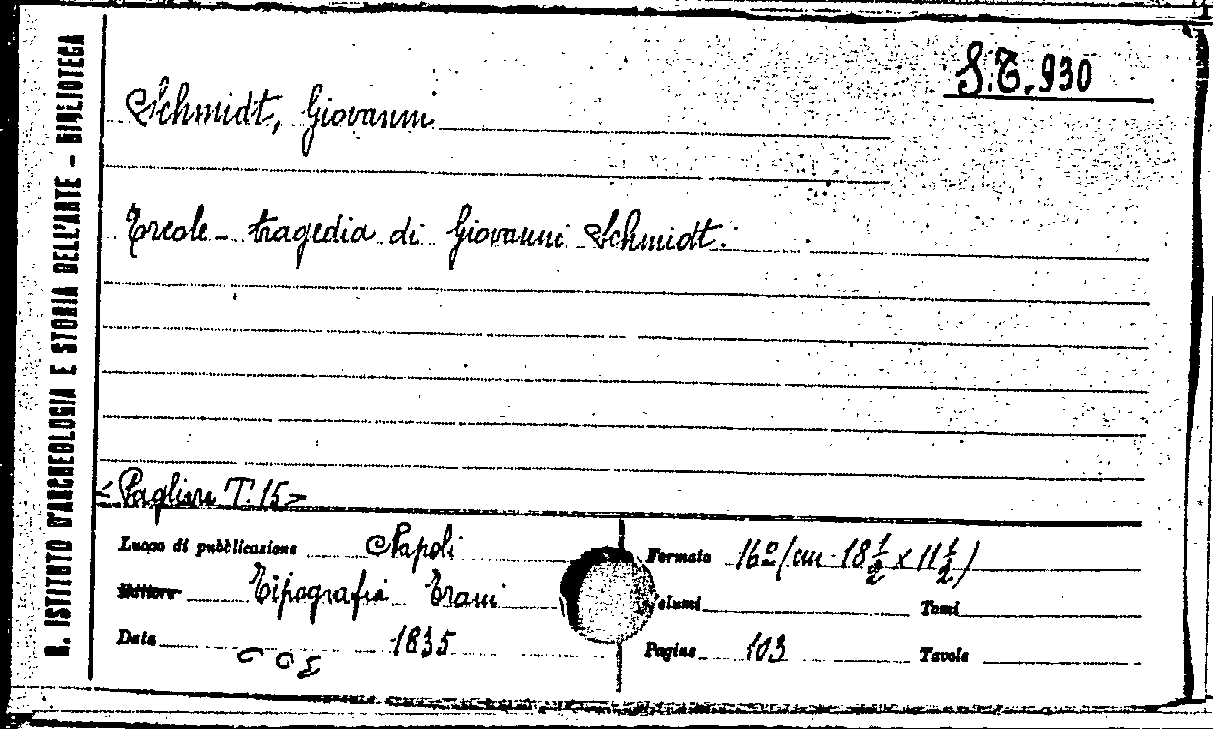 R. ISTITUTO D'ARCHEOLOGIA E STORIA DELL'ARTE - BIBLIOTECA
S.T. 930
Schmidt, Giovanni
Ercole - tragedia di Giovanni Schmidt.
<Pagliara T. 15>
Luogo di pubblicazione Napoli
Formato 16º (cm. 18 1/2 x 11 1/2)
Editore Tipografia Trani
Volumi
Tomi
Data 1835
Pagine 103
Tavole